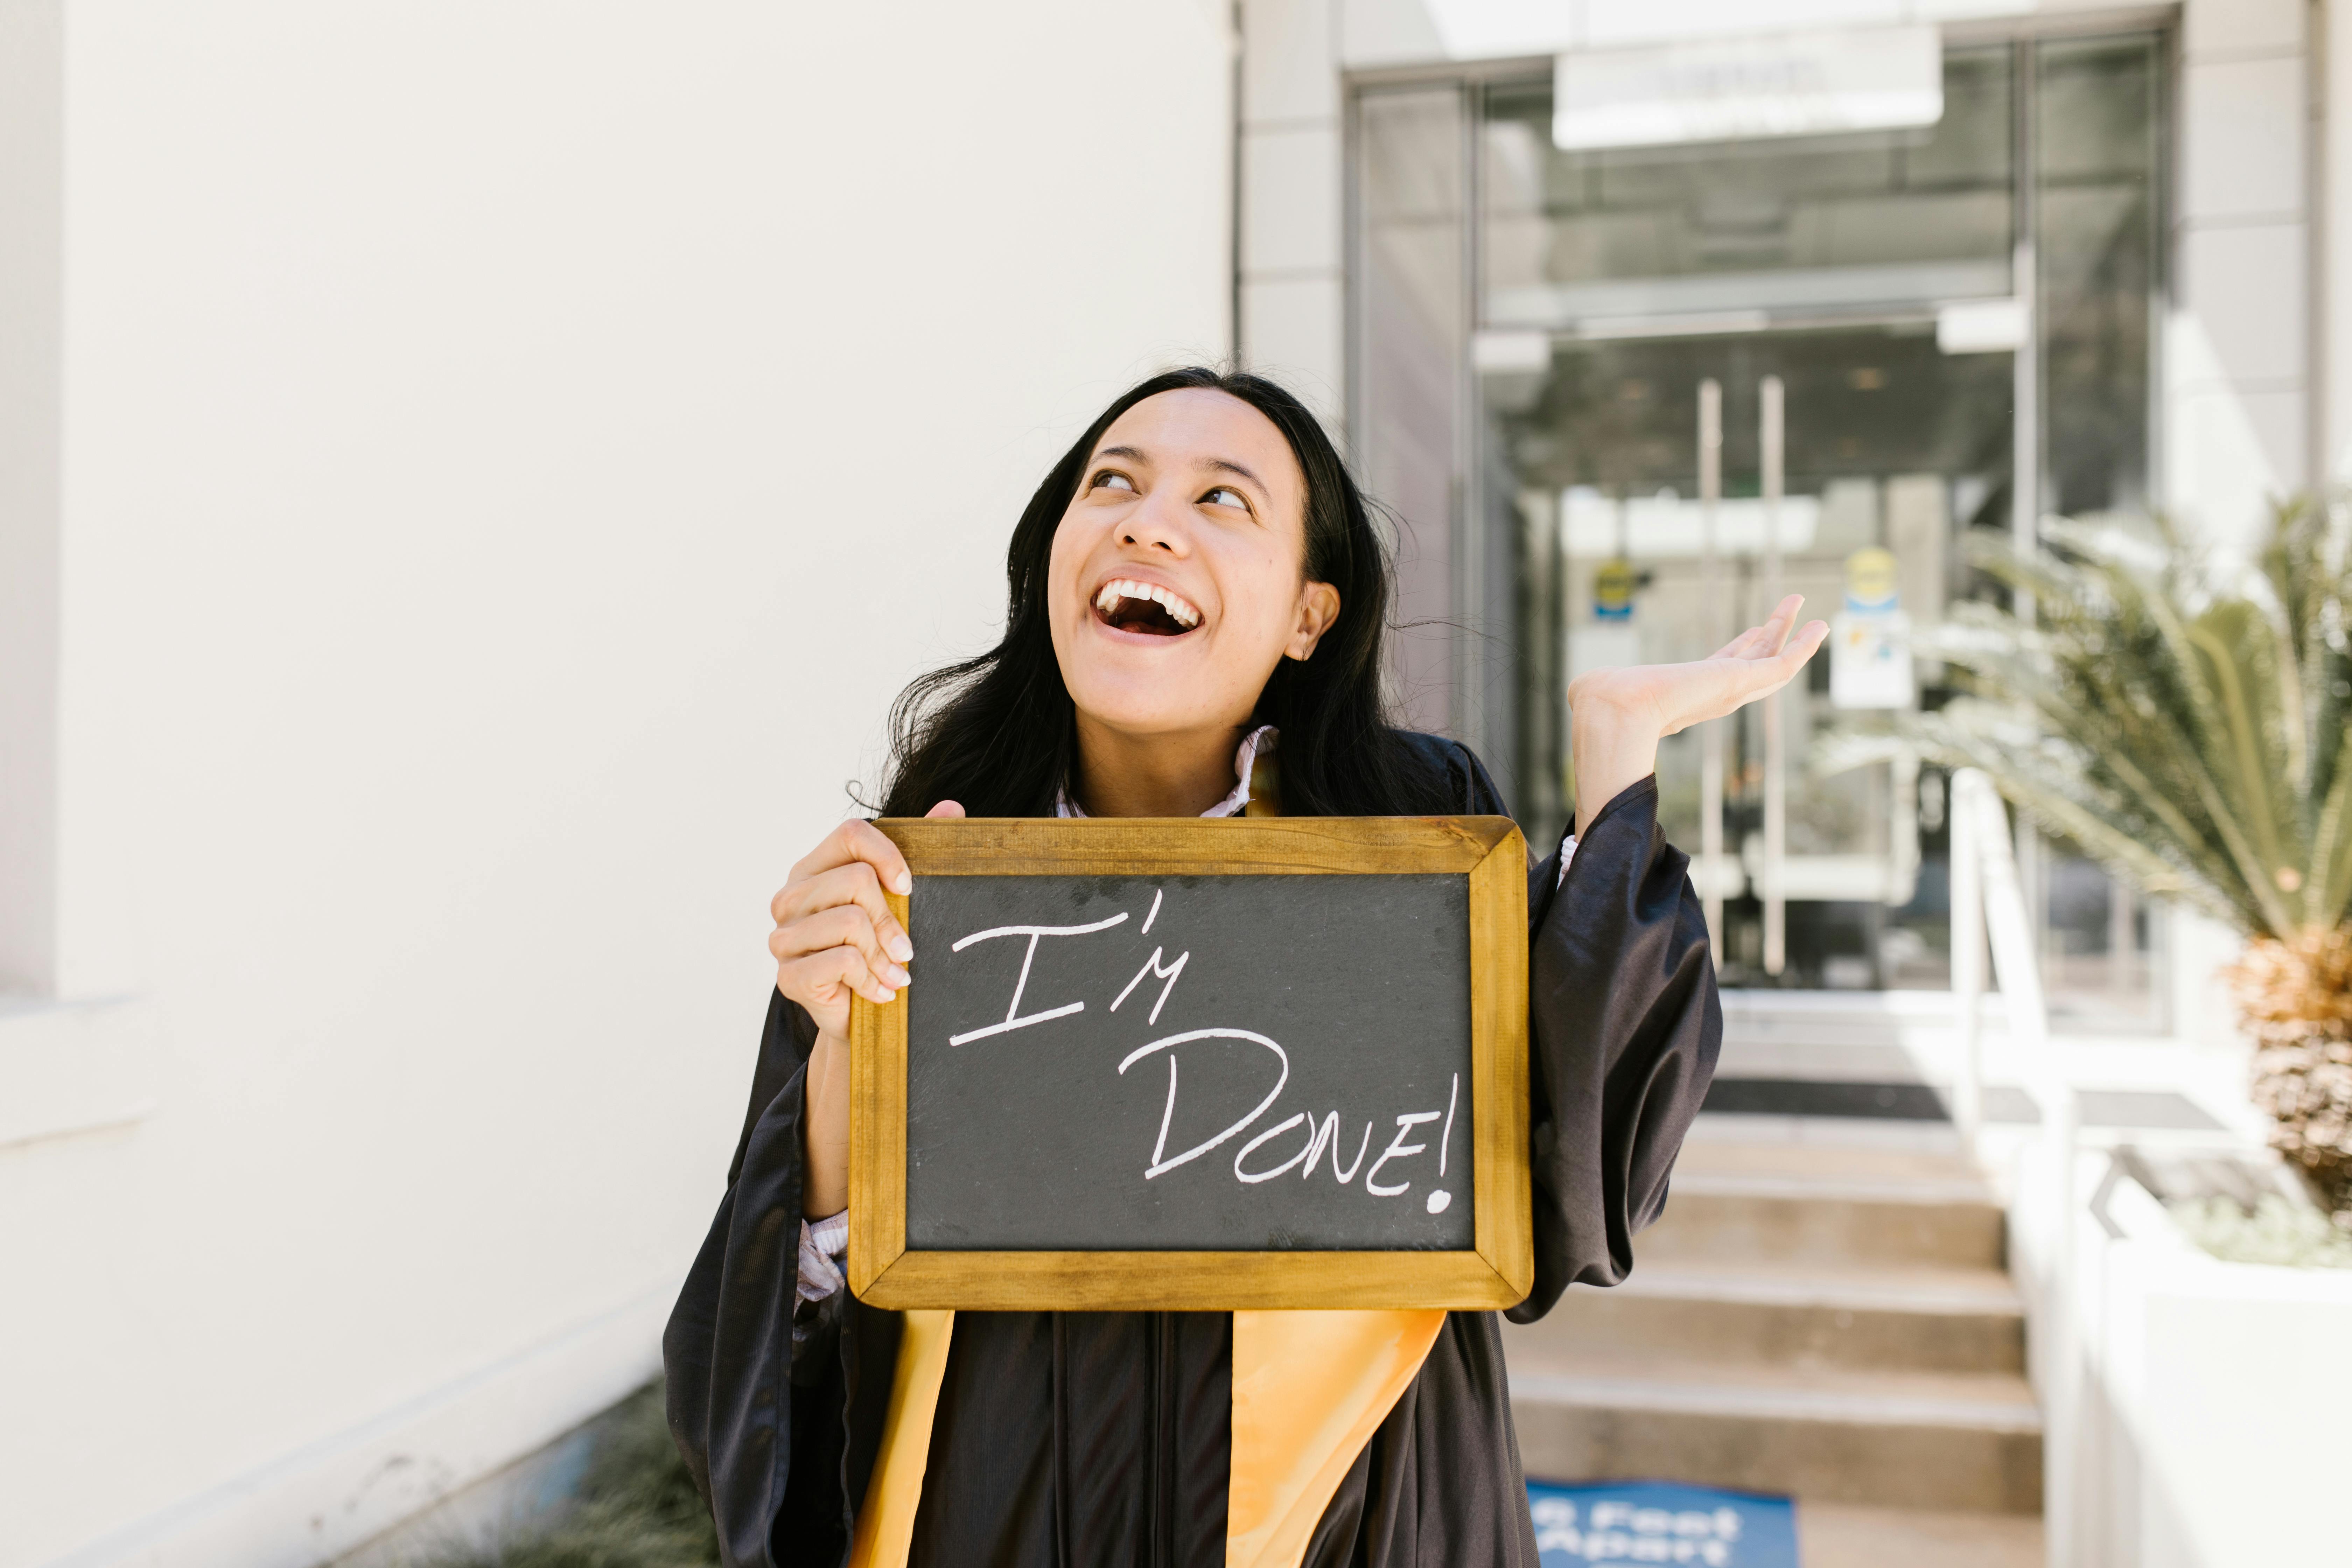 I'm
Done!
6 Feet
Apart